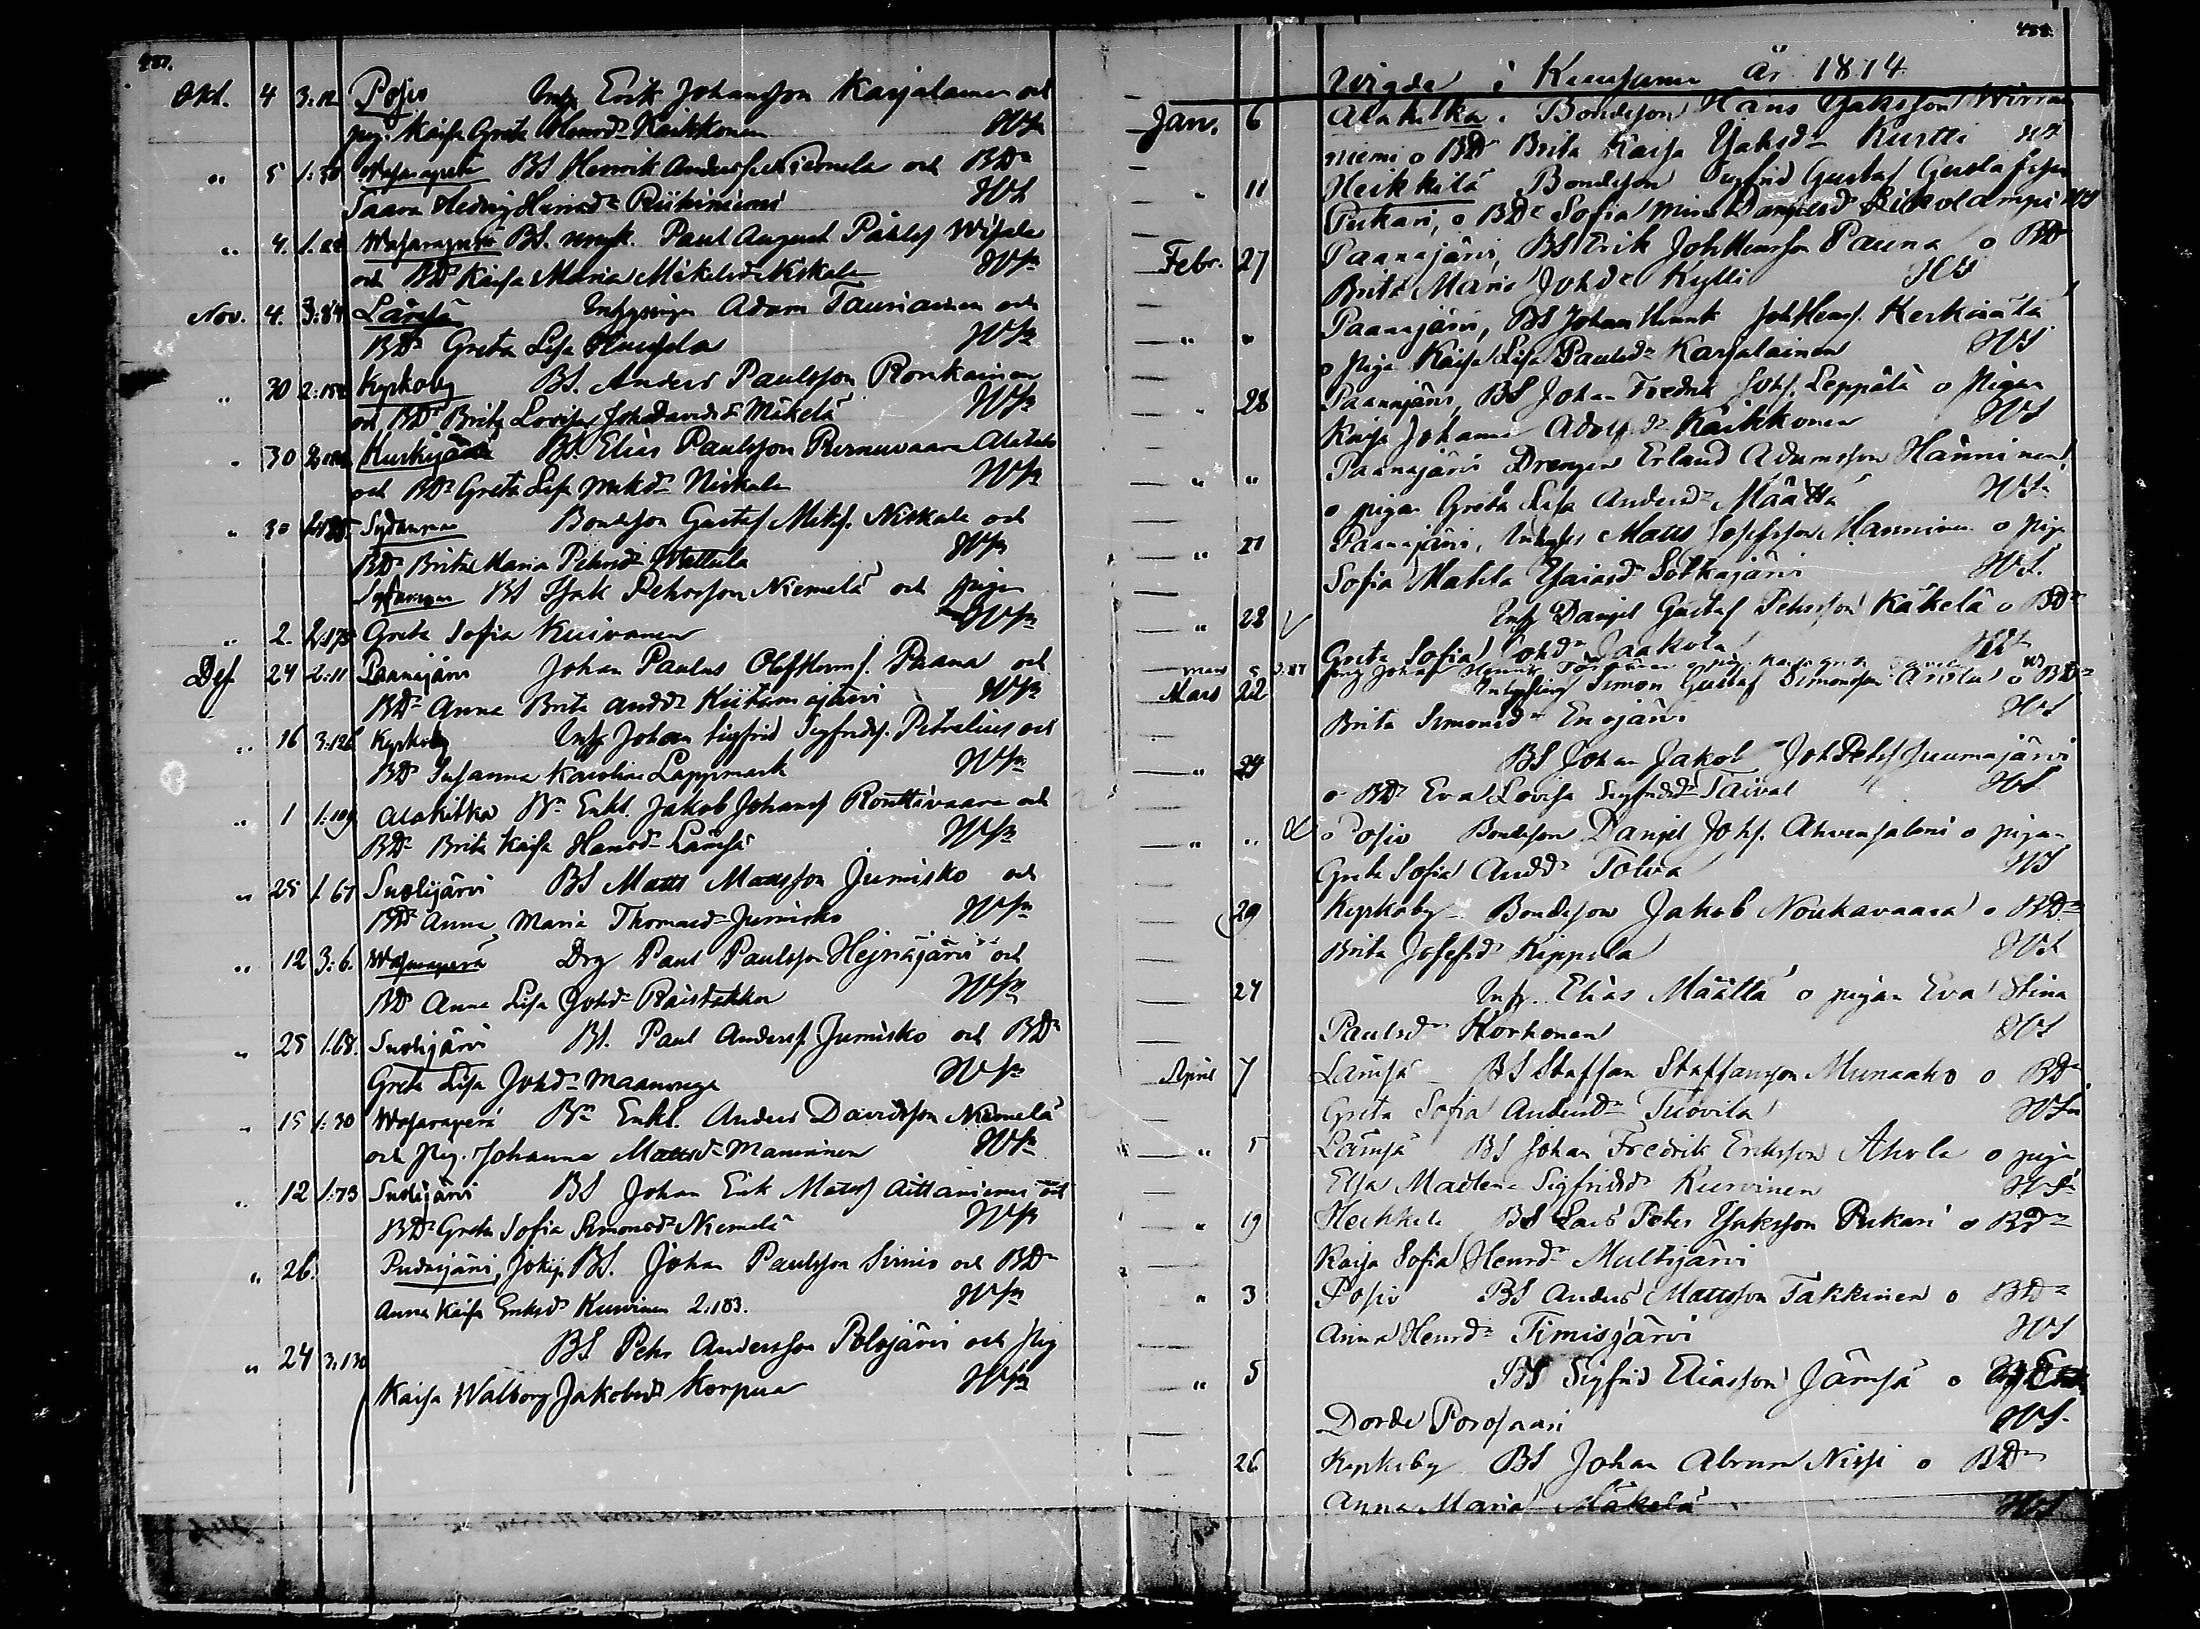 487.
Okt. 4 3:12 Posio Inh. Erik Johansson Karjalainen och
pig. Kaisa Greta Henrdr Kaikkonen WSn
" 5 1:30 Wasaraperä BS Henrik Anderss. Niemela och BDr
Saara Hedvig Henriksdr Riikiniemi WS
" 4. Wasaraperä BS. Paul August Påhls.
och BDr Kaisa Maria Mikelsdr Niskala WSn
Nov. 4. 3:84 Lämsä Inhysing Adam Tauriainen och
BDr Greta Lisa WSn
" 30 Kyrkoby BS. Anders Paulsson Ronkainen
och BDr Brita Lovisa Joh Davidsdr Mäkelä WSn
" 30 Kurkijärvi BS. Elias Paulsson Purnuvaara
och BDr Greta Lisa Matsdr Niskala WSn
" 30 Bondeson Gustaf Mats. Niskala och
BDr Brita Maria Pehrsdr WSn
BS Isak Pehrsson Niemelä och pigan
" 2. 2:175 Greta Sofia Kuivanen WSn
Des. 24 2:11 Paanajärvi Johan Paulus Olof Henr. Paana och
BDr Anna Brita Andsdr Kiitämäjärvi WSn
" 16 3:126 Kyrkoby Inh. Johan Sigfrid Sigfrids. Petrelius och
BDr Susanna Karolina Lappmark WSn
" 1 1:109 Alakitka Bn Enkl. Jakob Johans. Rontti­vaara och
BDr Brita Kaisa Hansdr Lämsä WSn
" 25 1.67 Suolijärvi BS Matts Mattsson Jumisko och
BDr Anna Maria Thomasdr Jumisko WSn
" 12 3:6. Wasaraperä Drg. Paul Paulsson Heinäjärvi och
BDr Anna Lisa Johdr Raistakka WSn
" 25 1.68. Suolijärvi BS. Paul Anderss. Jumisko och BDr
Greta Lisa Johdr Maaninga WSn
" 15 1:30 Wasaraperä Bn Enkl. Anders Davidsson Niemelä
och pig. Johanna Mattsdr Manninen WSn
" 12 1:73 Suolijärvi BS Johan Erik Matss. Aittaniemi och
BDr Greta Sofia Simonsdr Niemelä WSn
" 26. Pudasjärvi, BS. Johan Paulsson Sirniö och BDr
Anna Kaisa Eriksdr Kurvinen 2.183. WSn
" 24 3:130 BS. Pehr Andersson Polojärvi och pig
Kaisa Walborg Jakobsdr Korpua WSn
488.
Wigde i Kuusamo år 1814
Jan. 6 Alakitka. Bondeson Hans Isaksson Wirran
niemi o BDr Brita Kaisa Isaksdr Kurtti WS
" 11 Heikkilä Bondeson Sigfrid Gustaf Gustafsson
Pukari, o BDr Sofia WS
Febr. 27 Paanajärvi, BS Erik Joh Henrsson Pauna o BDr
Brita Maria Johdr Kylli WS
" " Paanajärvi, BS Johan Henrik Joh Henrs. Kerkivätä
o pigan Kaisa Lisa Paulsdr Karjalainen WS
" 28 Paanajärvi, BS Johan Fredrik Johs. Leppälä o Pigan
Kaisa Johanna Adolfsdr Kaikkonen WS
" " Paanajärvi Drengen Erland Adamsson Hänninen,
o pigan Greta Lisa Andersdr Määttä WSn
" 21 Paanajärvi, Matts Josefsson Manninen o pig.
Sofia Matela Isaiasdr Sotkajärvi WS.
" 28 V Inh. Daniel Gustaf Pehrsson Käkelä o BDr
Greta Sofia Johdr Jaakola WSn
mars 5 3.87 Johan Henrik
Mars 22 Simon Gustaf Simonsson Arvola o BDr
Brita Simonsdr Enojärvi WS
" 24 BS Johan Jakob Joh Pehrs. Juumajärvi
o BDr Eva Lovisa Sigfridsdr Taival WS
" " o Posio Bondeson Daniel Johs. Ahvensalmi o pigan
Greta Sofia Andsdr Tolva WS
29 Kyrkoby Bondeson Jakob Noukavaara o BDr
Brita Josefsdr Käppula WS
24 Inh. Elias Määttä o pigan Eva Stina
Paulsdr Korhonen WS
April 7 Lämsä BS Staffan Staffansson Munaaho o BDr
Greta Sofia Andersdr Tuovila WSn
" 5 Lämsä BS Johan Fredrik Eriksson Ahola o piga
Elsa Madlena Sigfridsdr Kurvinen WSn
" 19 Heikkilä BS Lars Peter Isaksson Pukari o BDr
Kaisa Sofia Henrdr Multijärvi
" 3 Posio BS Anders Mattsson Takkinen o BDr
Anna Henrdr Timisjärvi WS
" 5 BS Sigfrid Eliasson Jämsä o
Dorde Porosaari WS.
26 Kyrkoby BS Johan Abram Nissi o BDr
Anna Maria Mäkelä WS